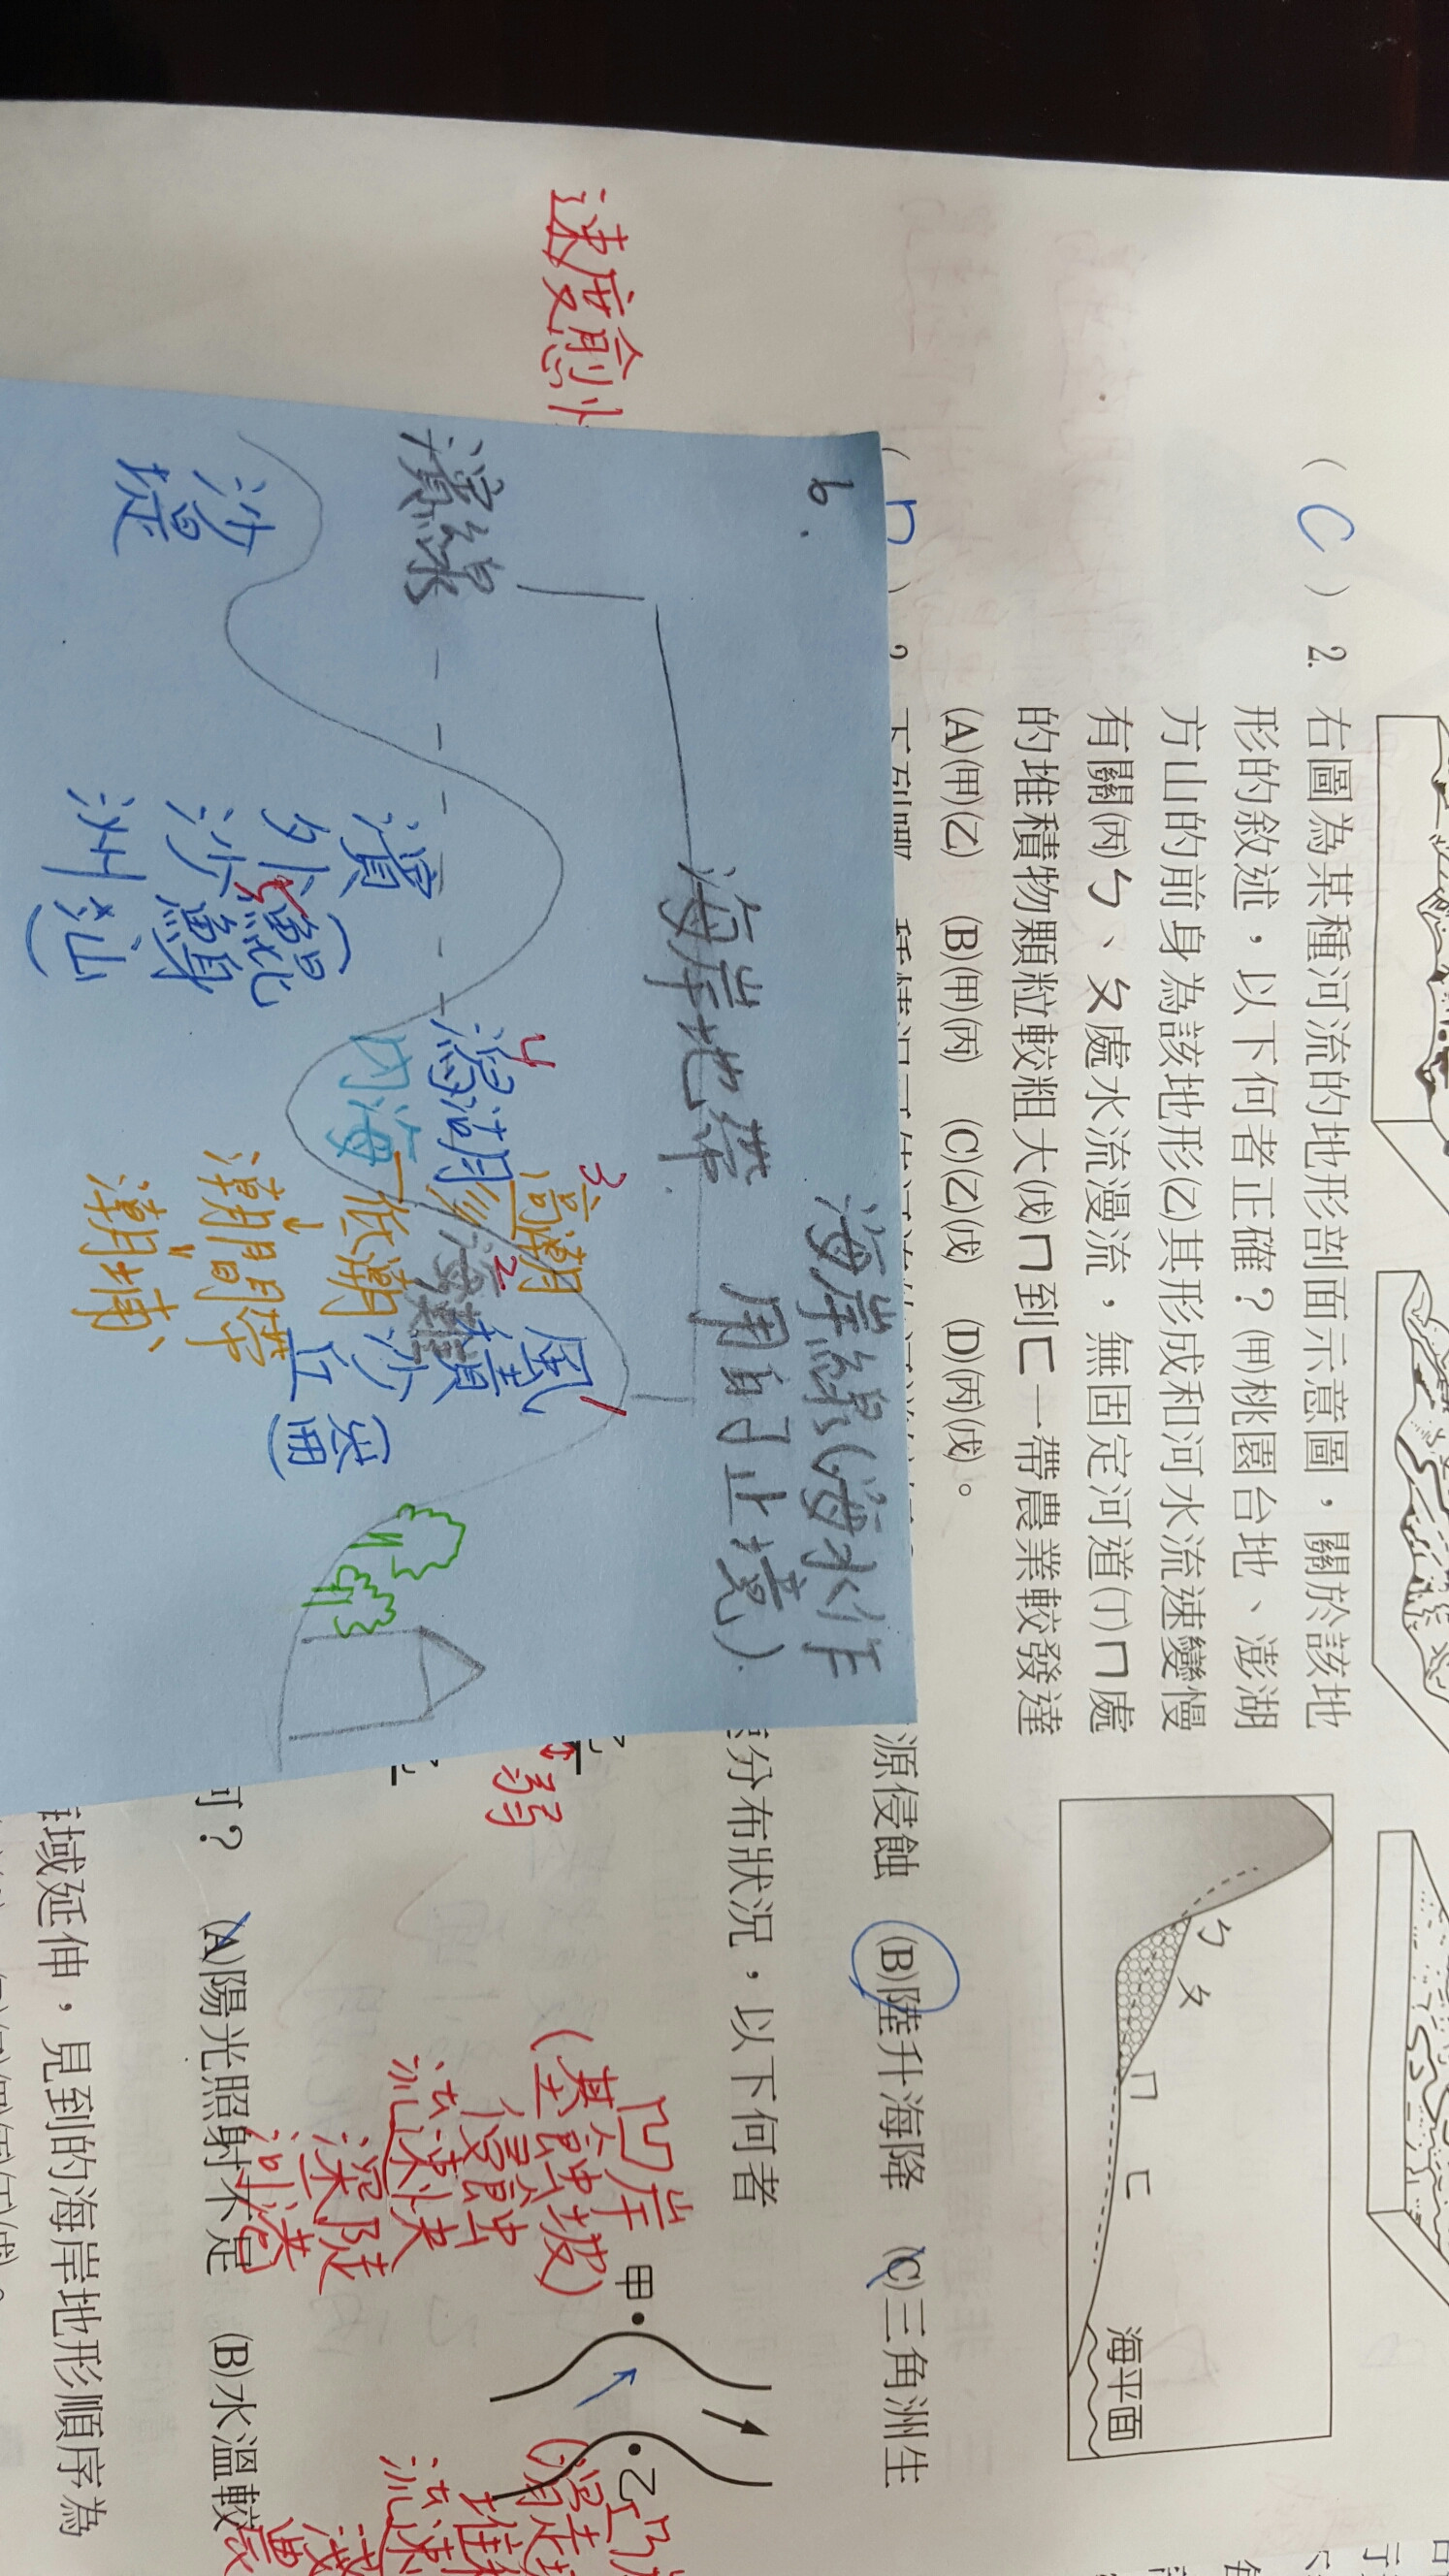 ( C ) 2. 右圖為某種河流的地形剖面示意圖，關於該地
形的敘述，以下何者正確？(甲)桃園台地、澎湖
方山的前身為該地形(乙)其形成和河水流速變慢
有關(丙)ㄅ、ㄆ處水流漫流，無固定河道(丁)ㄇ處
的堆積物顆粒較粗大(戊)ㄇ到ㄈ一帶農業較發達
(A)(甲)(乙) (B)(甲)(丙) (C)(乙)(戊) (D)(丙)(戊)。
ㄅ
ㄆ
ㄇ
ㄈ
海平面
源侵蝕 (B)陸升海降 (C)三角洲生
分布狀況，以下何者
速度愈
弱
6.
海岸線(海水作
用的止境)
海岸地帶
濱線
沙堤
濱外沙洲
(鯤鯓
山)
5
4
潟湖
內海
3
高潮
低潮
潮間帶
潮埔
2
灘
1
風積沙丘
凹岸
(基蝕坡)
侵蝕
流速快
深、陡
甲
乙
流速
何？ (A)陽光照射不足 (B)水溫較
域延伸，見到的海岸地形順序為